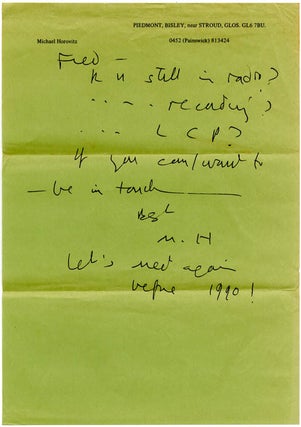 PIEDMONT, BISLEY, near STROUD, GLOS. GL6 7BU.
Michael Horovitz 0452 (Painswick) 813424
Fred —
R U still in radio?
.... recording?
... L C P?
If you can/want to
— be in touch —
Best
M. H
Let's meet again
before 1990!